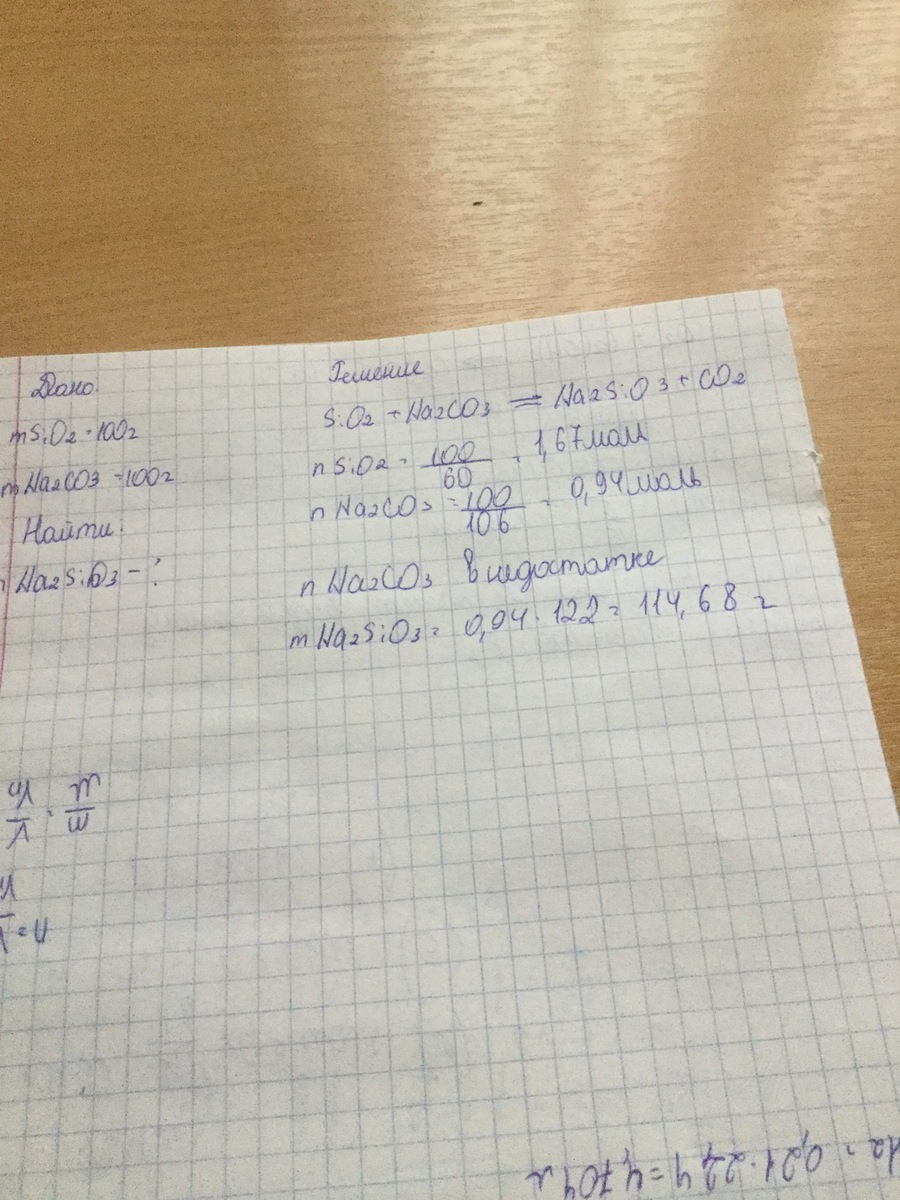 Дано:
mSiO2 = 100г
mNa2CO3 = 100г
Найти:
Na2SiO3 - ?
Решение
SiO2 + Na2CO3 = Na2SiO3 + CO2
n SiO2 = 100/60 = 1,67моль
n Na2CO3 = 100/106 = 0,94моль
n Na2CO3 в недостатке
m Na2SiO3 = 0,94 · 122 = 114,68 г
0,21·22,4=4,704л